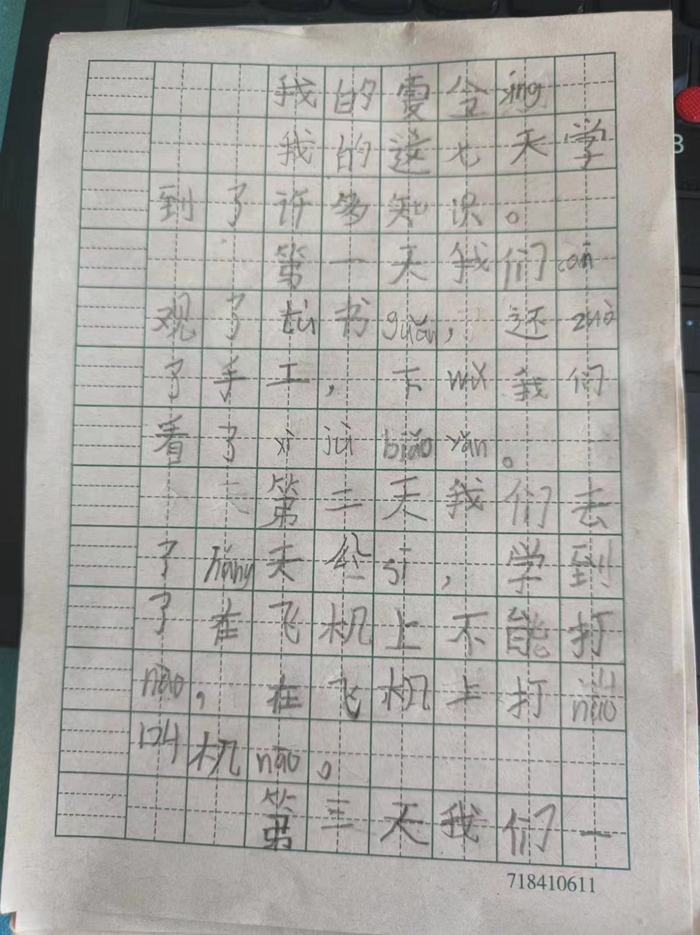 我的夏令xíng
我的这七天学
到了许多知识。
第一天我们cān
观了tú书guǎn，还zuò
了手工，下wǔ我们
看了xì jù biǎo yǎn。
第二天我们去
了háng天公sī，学到
了在飞机上不能打
nào，在飞机上打nào
叫机nào。
第三天我们一
718410611